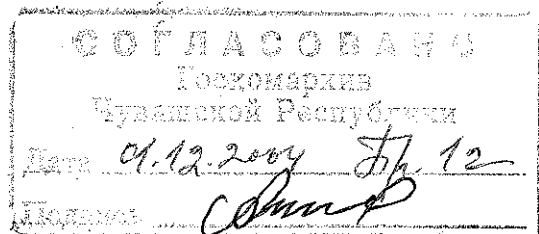 СОГЛАСОВАНО
Госкомархив
Чувашской Республики
Дата 01.12.2004 Пр. 12
Подпись